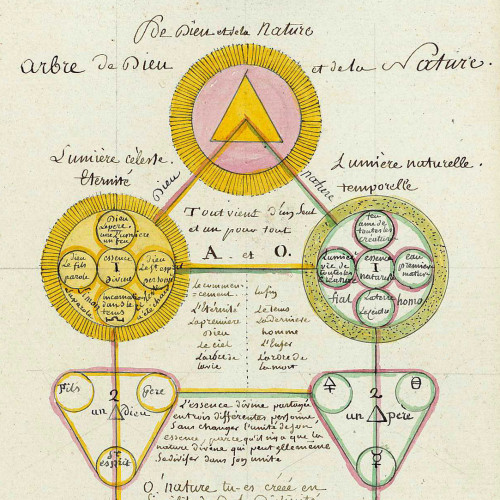 De Dieu et de la Nature
Arbre de Dieu et de la Nature.
Lumière céleste.
Eternité
Lumière naturelle.
temporelle
Dieu
nature
Tout vient d'un Seul
et un pour tout
A et O.
Dieu
Le père
une Lumière
un feu
Dieu
Le fils
parole
essence
1
Divine
Dieu
Le St esp
incarnation
dans le
tems
feu
ame de
toutes les
creatures
Lumière
vie de
toutes les
essence
1
nature
eau
premier
matiere
La terre
fiat
homo
Le commen-
cement
L'Eternité
La première
Dieu
Le ciel
L'arbre de
la vie
La fin
Le tems
La dernière
homme
L'Enfer
L'arbre de
la mort
Fils
Père
2
un Dieu
St
esprit
2
un père
L'essence divine partagée
en trois différentes personne
Sans changer l'unité de son
essence, parce qu'il n'y a que la
nature divine qui peut également
se diviser dans son unité
O! nature tu es créée en